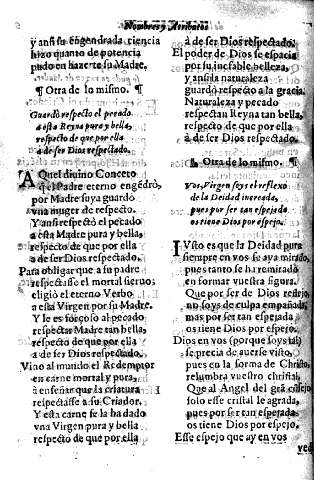 Nombres y Atributos
y ansi su engendrada ciencia
hizo quanto de potencia
pudo en hazerte su Madre.
¶ Otra de lo mismo. ¶
Guardò respecto el pecado
a esta Reyna pura y bella,
respecto de que por ella
à de ser Dios respectado.
AQuel diuino Conceto
q̃ el Padre eterno engẽdrò,
por Madre suya guardò
vna muger de respecto.
Y ansi respectò el pecado
a esta Madre pura y bella,
respecto de que por ella
à de ser Dios respectado.
Para obligar que a su padre
respectasse el mortal sieruo,
eligiò el eterno Verbo
a esta Virgen por su Madre.
Y le es forçoso al pecado
respectar Madre tan bella,
respecto de que por ella
à de ser Dios respectado.
Vino al mundo el Redemptor
en carne mortal y pura,
à enseñar que la criatura
respectasse a su Criador.
Y esta carne se la ha dado
vna Virgen pura y bella
respecto de que por ella
à de ser Dios respectado.
El poder de Dios se espacia
por su inefable belleza,
y ansi la naturaleza
guardò respecto a la gracia.
Naturaleza y pecado
respectan Reyna tan bella,
respecto de que por ella
à de ser Dios respectado.
Otra de lo mismo. ¶
Vos, Virgen soys el reflexo
de la Deidad increada,
pues por ser tan espejada
os tiene Dios por espejo.
IVsto es que la Deidad pura
siempre en vos se aya mirado,
pues tanto se ha remirado
en formar vuestra figura.
Que por ser de Dios reflejo
no soys de culpa empañada,
mas por ser tan espejada
os tiene Dios por espejo.
Dios en vos (porque soys tal)
se precia de auerse visto,
pues en la forma de Christo,
relumbra vuestro christal.
Que al Angel del grã cõsejo
solo esse cristal le agrada,
pues por ser tan espejada
os tiene Dios por espejo.
Esse espejo que ay en vos
ved